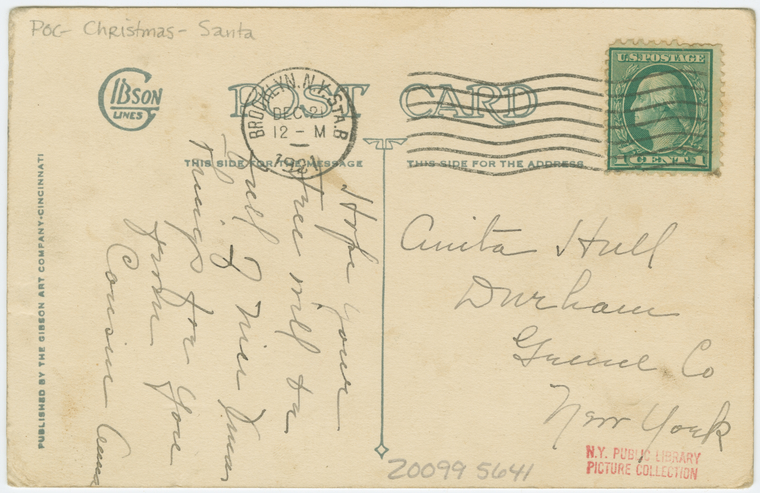 POC- Christmas- Santa
GIBSON
LINES
POST CARD
BROOKLYN. N.Y. STA. B
DEC 21
12 - M
1921
U.S. POSTAGE
1 CENT 1
THIS SIDE FOR THE MESSAGE
THIS SIDE FOR THE ADDRESS.
Hope your
tree will be
full of nice Xmas
things for you
from
Cousin Anna
Anita Hull
Durham
Greene Co
New York
PUBLISHED BY THE GIBSON ART COMPANY-CINCINNATI
N.Y. PUBLIC LIBRARY
PICTURE COLLECTION
20099 5641